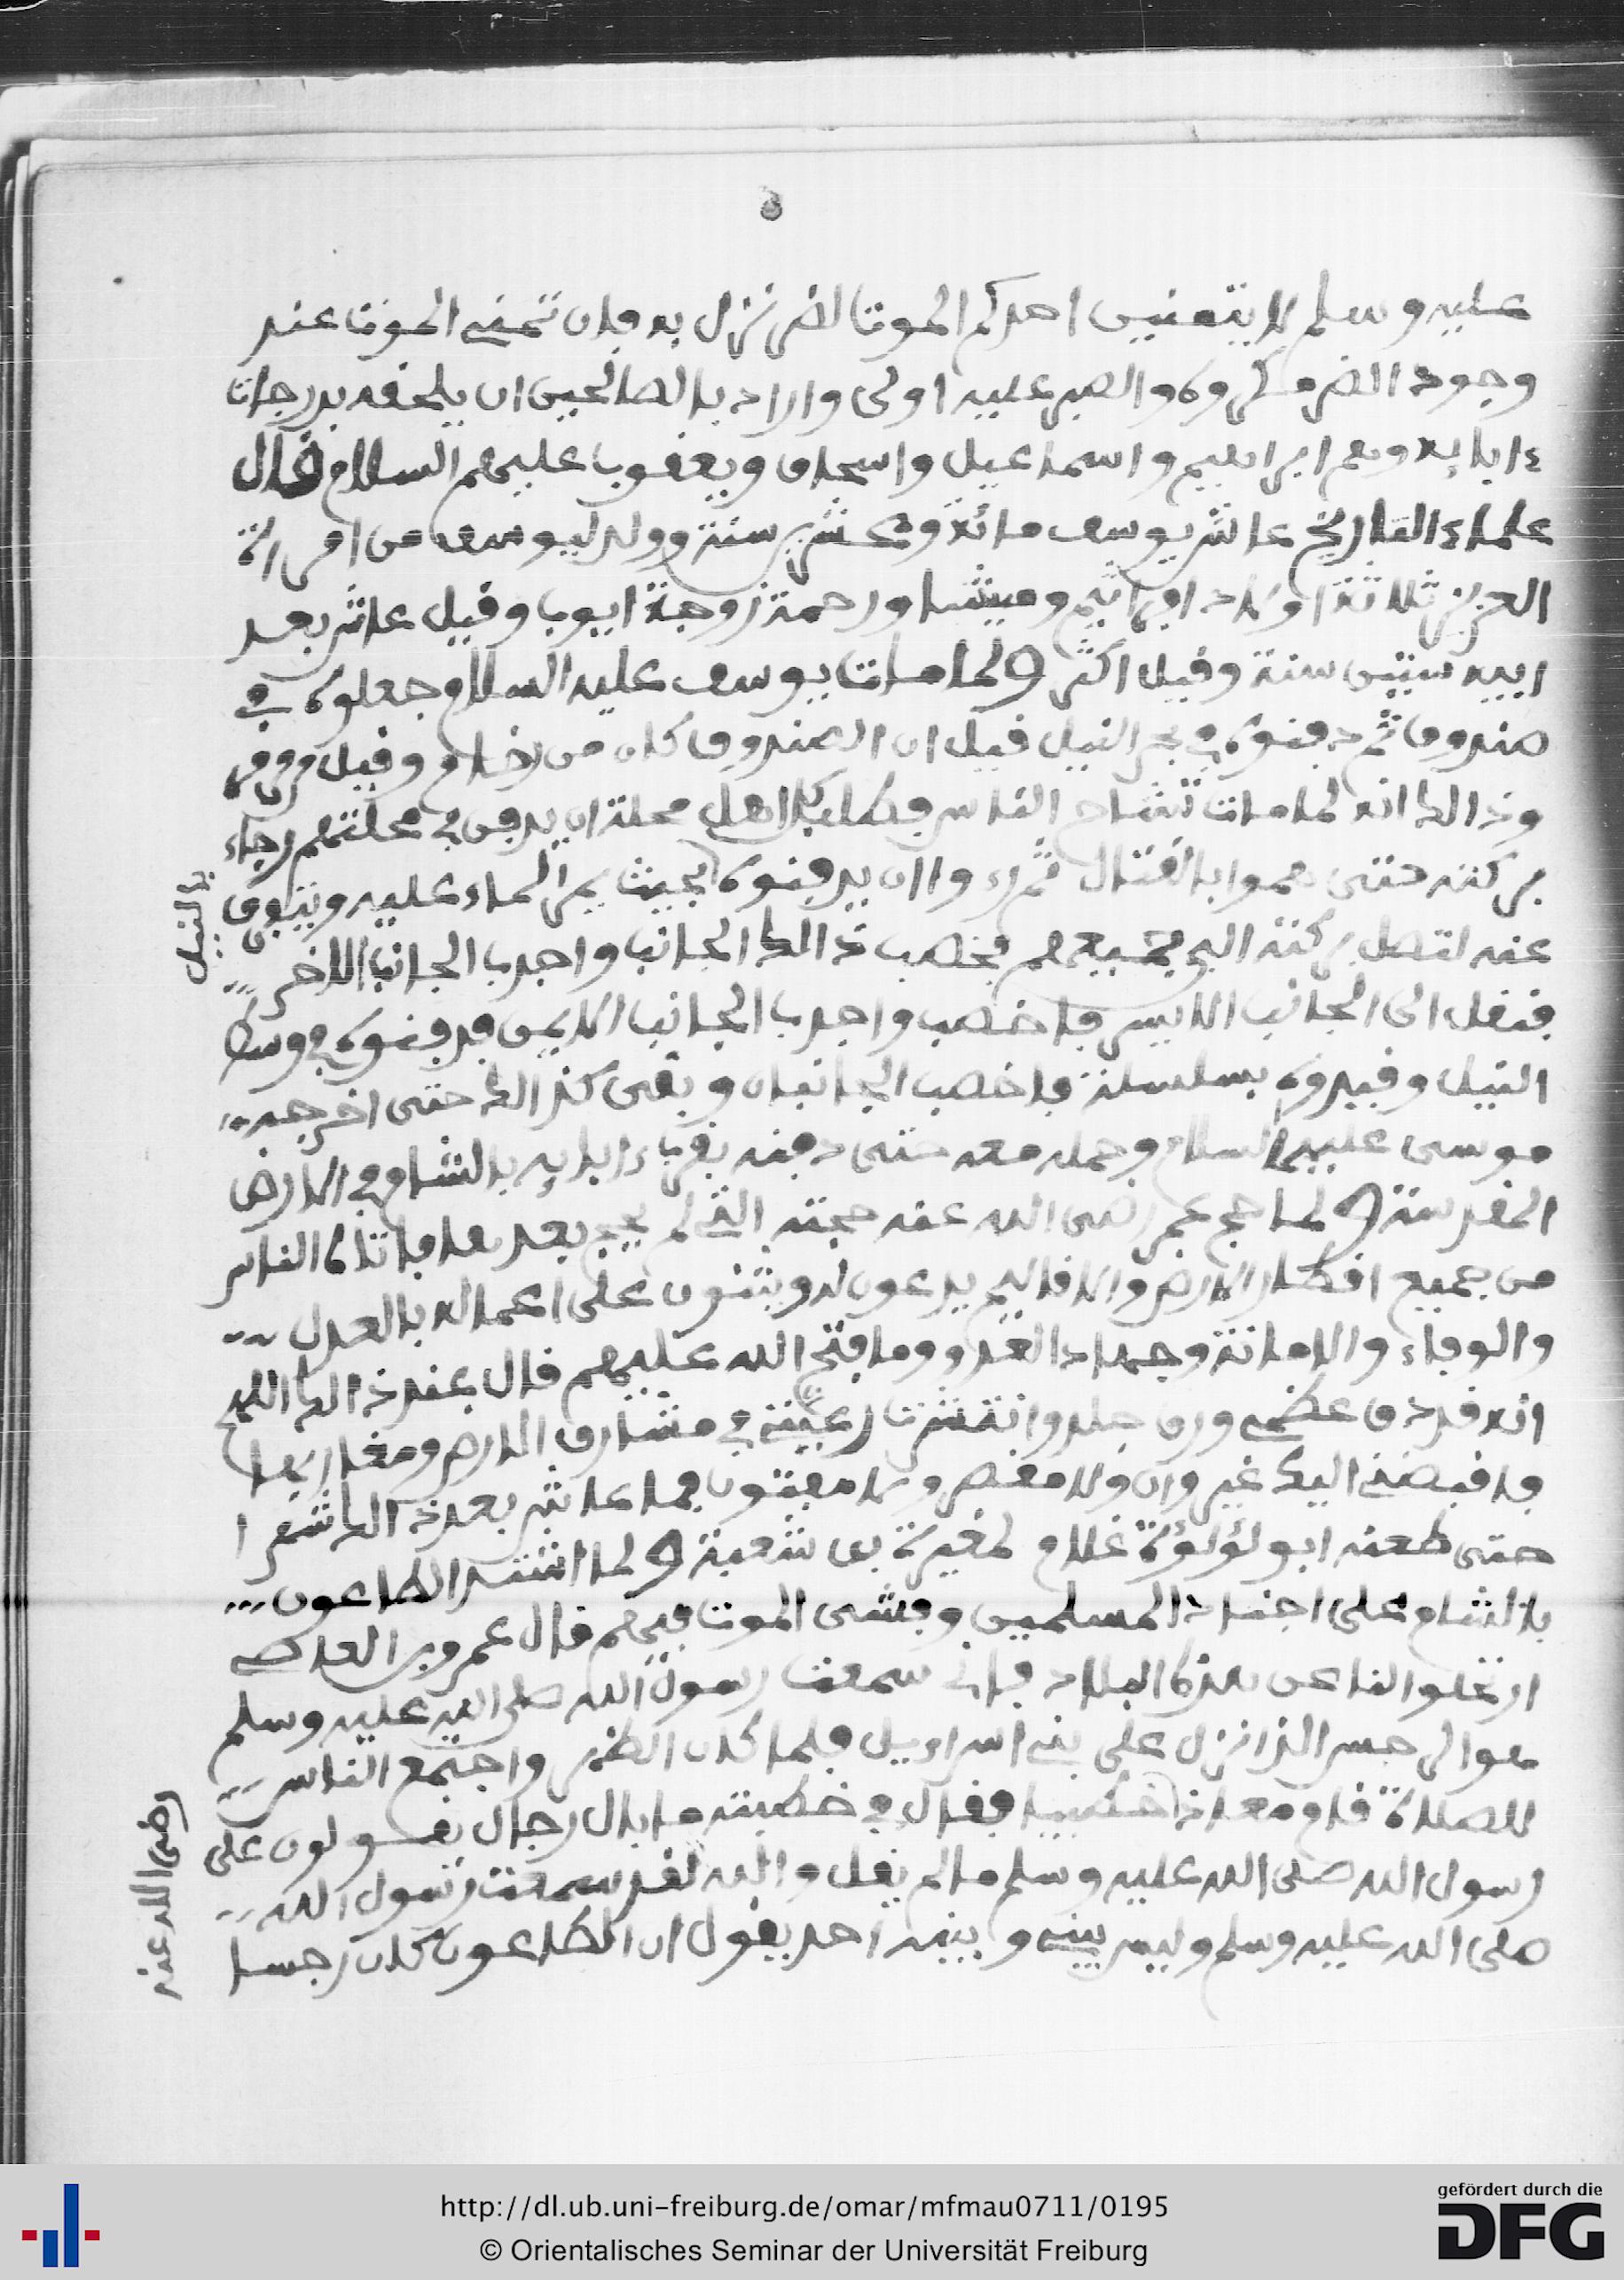 عليه وسلم لا يتمنين احدكم الموت لضر نزل به فان تمني الموت عند
وجود الضر مكروه والصبر عليه اولى واراد بالصالحين ان يلحقه بدرجات
ءابايه وهم ابراهيم واسماعيل واسحاق ويعقوب عليهم السلام قال
علماء التاريخ عاش يوسف مائة وعشرين سنة وولد ليوسف من امراة
العزيز ثلاثة اولاد افراثيم وميشا ورحمة زوجة ايوب وقيل عاش بعد
ابيه ستين سنة وقيل اكثر ولما مات يوسف عليه السلام جعلوه في
صندوق ثم دفنوه في بحر النيل قيل ان الصندوق كان من رخام وقيل مرمر
وذالك انه لما مات تشاح الناس فطلب كل اهل محلة ان يدفن في محلتهم رجاء
بركته حتى هموا بالقتال ثم رءوا ان يدفنوه بالنيل بحيث يمر الماء عليه ويتفرق
عنه لتصل بركته الى جميعهم فخصب ذالك الجانب واجدب الجانب الاخر
فنقل الى الجانب الايسر فاخصب واجدب الجانب الايمن فدفنوه في وسط
النيل وقيدوه بسلسلة فاخصب الجانبان وبقى كذالك حتى اخرجه
موسى عليهما السلام وحمله معه حتى دفنه بقرب ءابايه بالشام في الارض
المقدسة ولما حج عمر رضى الله عنه حجته التي لم يحج بعدها فاتاه الناس
من جميع اقطار الارض والاقاليم يدعون له ويثنون على اعماله بالعدل
والوفاء والامانة وجهاد العدو وما فتح الله عليهم قال عند ذالك اللهم
انه قد دق عظمي ورق جلدي وانتشرت رعيتي في مشارق الارض ومغاربها
فاقبضني اليك غير وان ولا مقصر ولا مفتون فما عاش بعد ذالك شهرا
حتى طعنه ابو لؤلؤة غلام لمغيرة بن شعبة ولما اشتد الطاعون
بالشام على اجناد المسلمين وفشى الموت فيهم قال عمرو بن العاص
ارتحلوا الناعن هذه البلاد فإني سمعت رسول الله صلى الله عليه وسلم
هو الرجس الذي نزل على بني اسراءيل فلما كان الظهر واجتمع الناس
للصلاة قام معاذ رضي الله عنه خطيبا فقال في خطبته ما بال رجال يقولون على
رسول الله صلى الله عليه وسلم ما لم يقل والله لقد سمعت رسول الله
صلى الله عليه وسلم وليس بيني وبينه احد يقول ان الطاعون كان رجسا
http://dl.ub.uni-freiburg.de/omar/mfmau0711/0195
© Orientalisches Seminar der Universität Freiburg
gefördert durch die
DFG